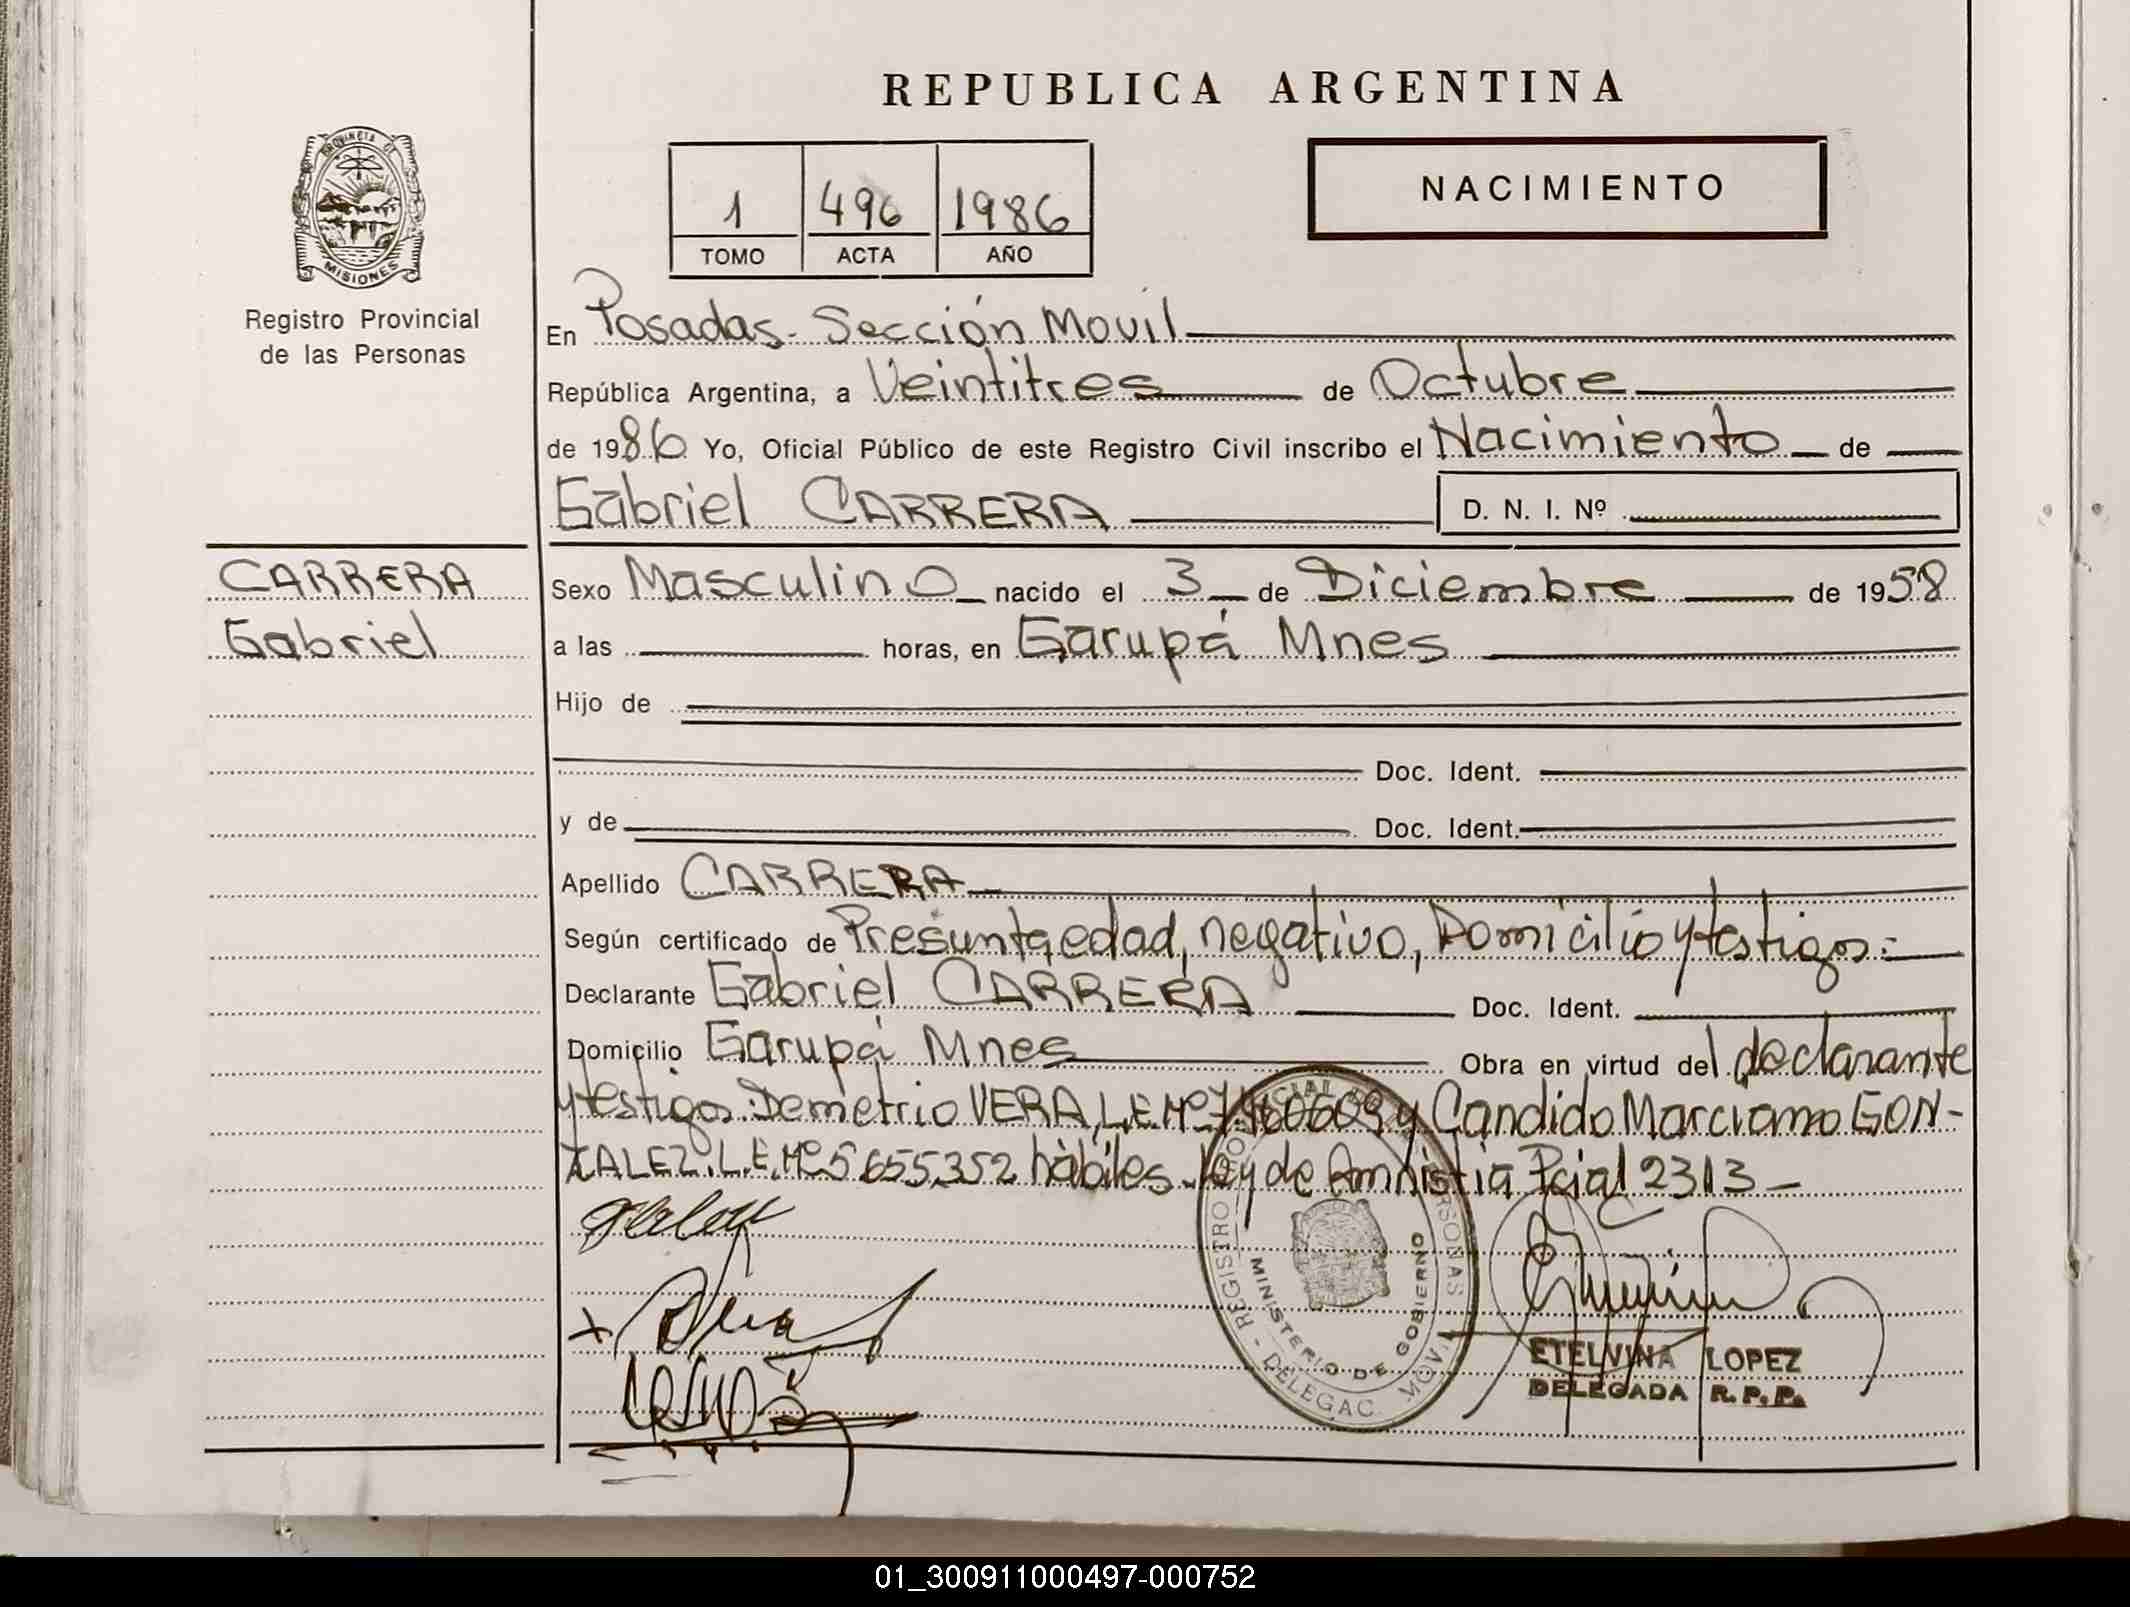 REPUBLICA ARGENTINA
PROVINCIA DE
MISIONES
Registro Provincial
de las Personas
1 496 1986
TOMO ACTA AÑO
NACIMIENTO
En Posadas - Sección Movil
República Argentina, a Veintitres de Octubre
de 1986 Yo, Oficial Público de este Registro Civil inscribo el Nacimiento de
Gabriel CARRERA D. N. I. Nº
CARRERA
Gabriel
Sexo Masculino nacido el 3 de Diciembre de 1958
a las horas, en Garupá Mnes
Hijo de
Doc. Ident.
y de Doc. Ident.
Apellido CARRERA
Según certificado de Presunta edad, negativo, Domicilio y testigos.=
Declarante Gabriel CARRERA Doc. Ident.
Domicilio Garupá Mnes Obra en virtud del declarante
y testigos: Demetrio VERA, L.E.Nº y Candido Marciano GON-
ZALEZ L.E.Nº 5.655.352 hábiles. ley de Amnistia Pcial 2313 -
REGISTRO
MINISTERIO DE GOBIERNO
DELEGAC. MOVIL
ETELVINA LOPEZ
DELEGADA R.P.P.
01_300911000497-000752